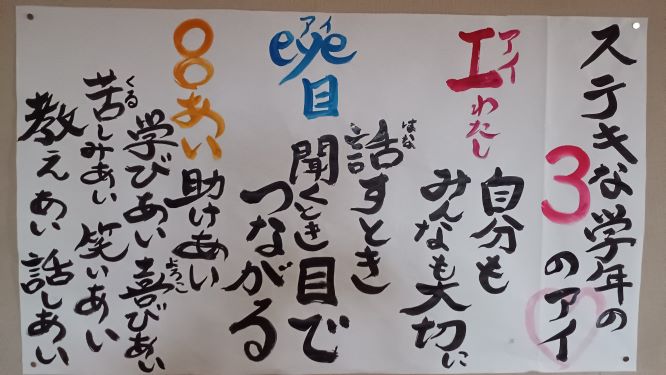 ステキな学年の
3のアイ
I アイ わたし
自分も
みんなも大切に
eye アイ 目
話すとき はな
聞くとき目で
つながる
∞あい
助けあい
学びあい 喜びあい よろこ
苦しみあい 笑いあい くる
教えあい 話しあい